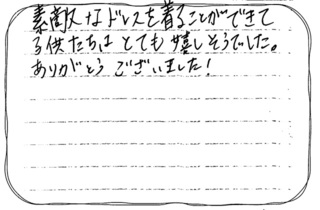 素敵なドレスを着ることができて
子供たちはとても嬉しそうでした。
ありがとうございました!